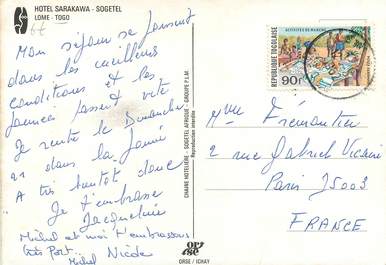 HOTEL SARAKAWA - SOGETEL
LOME - TOGO
Mon séjour se poursuit
dans les meilleures
conditions et les
journées passent vite
Je rentre le Dimanche
21 dans la
A très bientôt donc
Je t'embrasse
Jacqueline
Michel et moi t'embrassons
très fort.
Michel Nicole
CHAINE HOTELIERE - SOGETEL AFRIQUE - GROUPE P.L.M.
Reproduction interdite
ORSE / ICHAY
REPUBLIQUE TOGOLAISE
ACTIVITES DU MARCHE
90F
Mme Frémontier
2 rue Gabriel Vicaire
Paris 75003
FRANCE